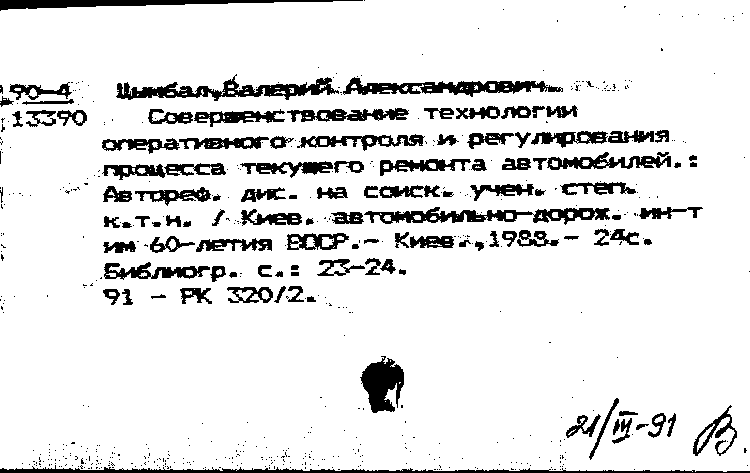 90-4 Цымбал, Валерий Александрович.
13390 Совершенствование технологии
оперативного контроля и регулирования
процесса текущего ремонта автомобилей.:
Автореф. дис. на соиск. учен. степ.
к.т.н. / Киев. автомобильно-дорож. ин-т
им 60-летия ВОСР.- Киев.,1988.- 24с.
Библиогр. с.: 23-24.
91 - РК 320/2.
21/III-91 В.